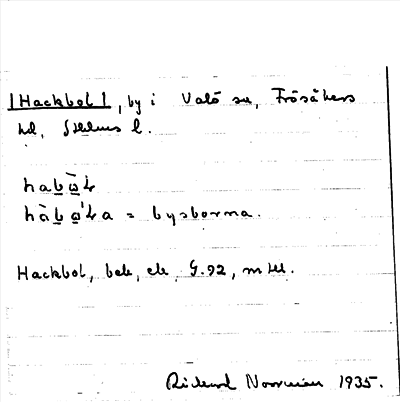 [Hackbol], by i Valö sn, Frösåkers
hd, Sthlms l.
habo̱l
hàbo̱'la = bysborna.
Hackbol, beb, ek, G.92, m hd.
Rickard Norrman 1935.